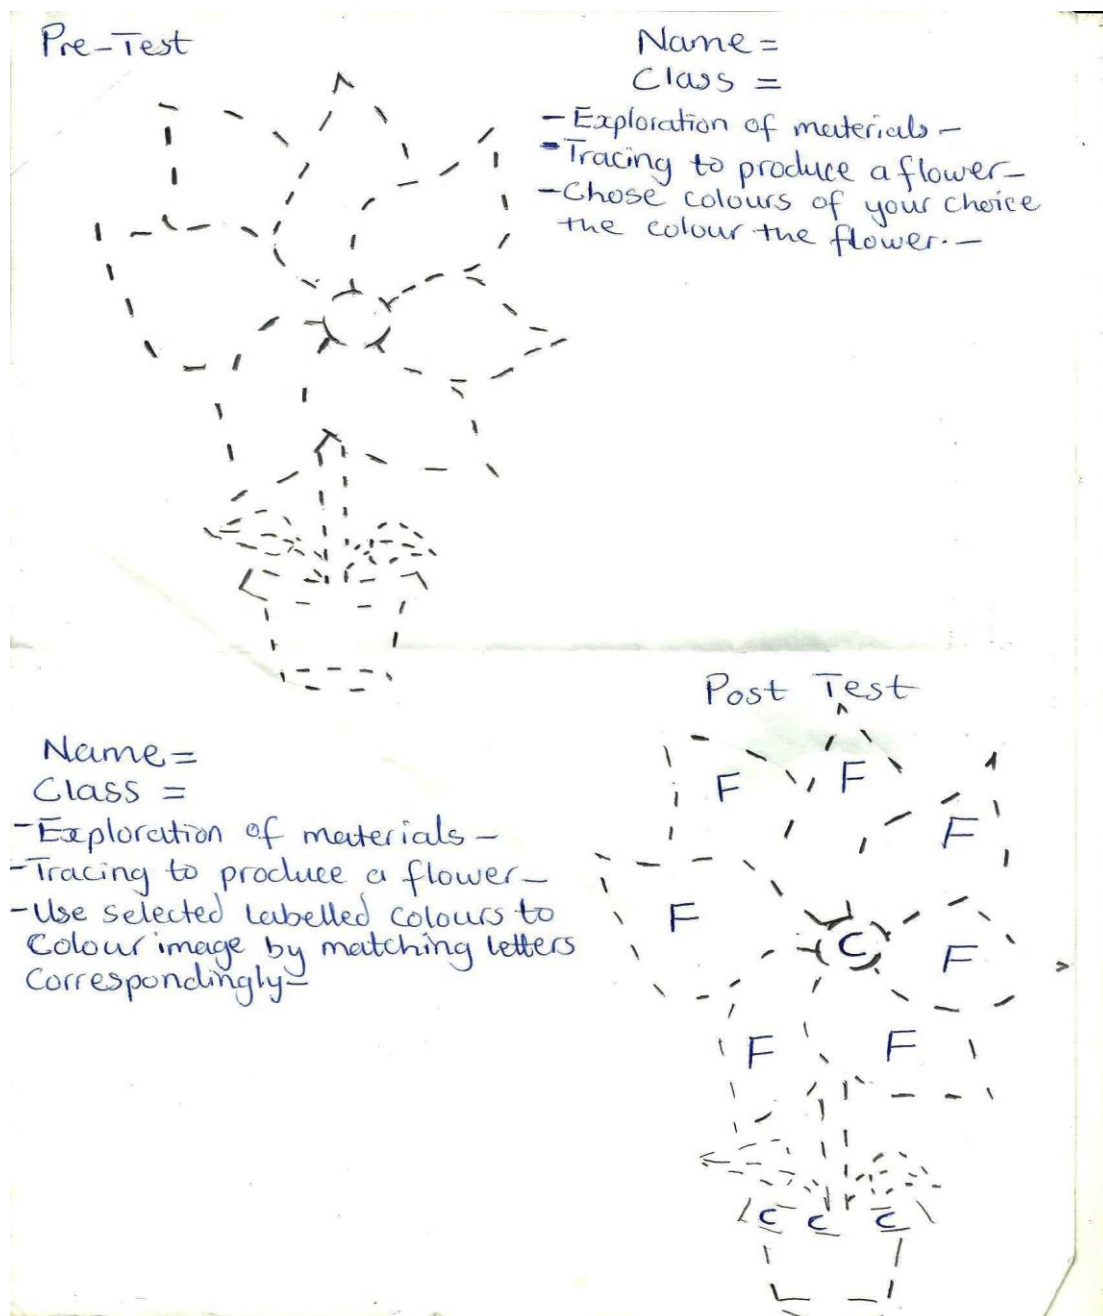 Pre-Test
Name =
Class =
- Exploration of materials -
- Tracing to produce a flower -
- Chose colours of your choice
the colour the flower. -
Post Test
Name =
Class =
- Exploration of materials -
- Tracing to produce a flower -
- Use selected labelled colours to
Colour image by matching letters
Correspondingly -
F
F
F
F
C
F
F
F
C C C